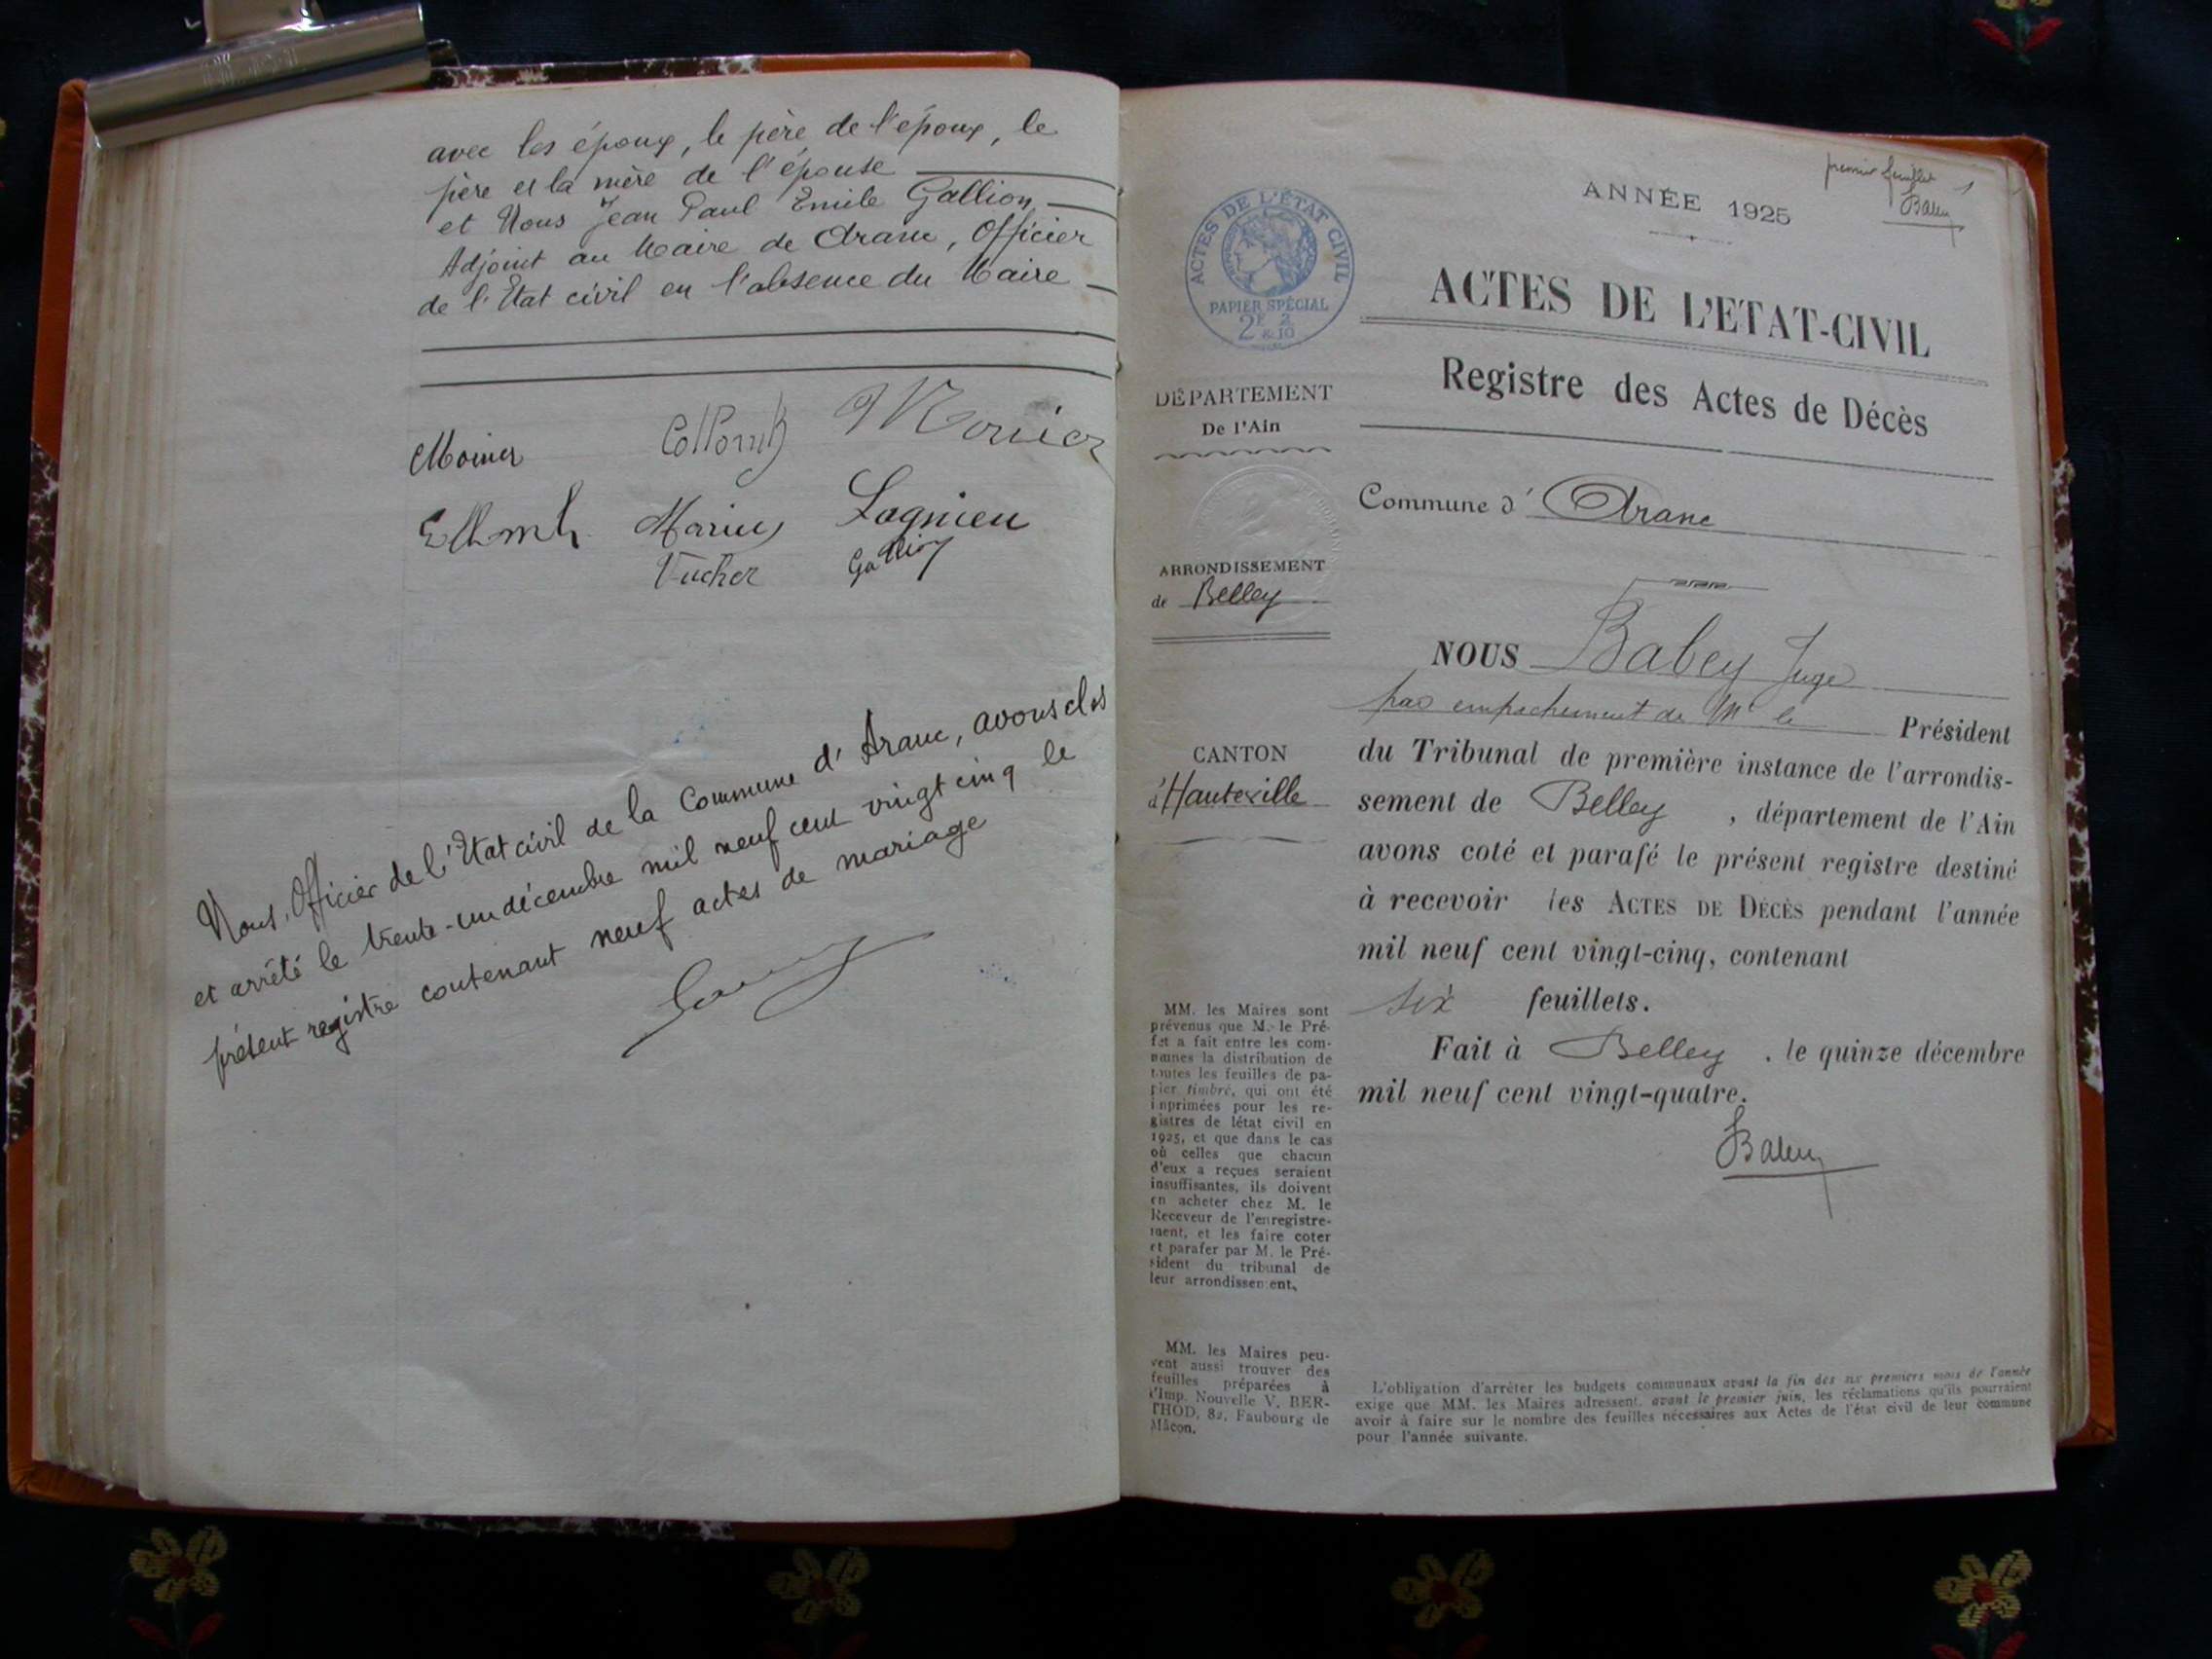 avec les époux, le père de l'époux, le
père et la mère de l'épouse
et Nous Jean Paul Emile Gallion,
Adjoint au Maire de Aranc, Officier
de l'Etat civil en l'absence du Maire
Moinier
Marius Lagnieu
Tucher Gallion
Nous, Officier de l'Etat civil de la Commune d'Aranc, avons clos
et arrêté le trente-un décembre mil neuf cent vingt cinq le
présent registre contenant neuf actes de mariage
premier feuillet 1
Babey
ANNÉE 1925
ACTES DE L'ÉTAT CIVIL
PAPIER SPÉCIAL
2F & 2/10
ACTES DE L'ETAT-CIVIL
Registre des Actes de Décès
DÉPARTEMENT
De l'Ain
Commune d' Aranc
ARRONDISSEMENT
de Belley
CANTON
d'Hauteville
NOUS Babey Juge
par empechement de Mr le Président
du Tribunal de première instance de l'arrondis-
sement de Belley, département de l'Ain
avons coté et parafé le présent registre destiné
à recevoir les ACTES DE DÉCÈS pendant l'année
mil neuf cent vingt-cinq, contenant
six feuillets.
Fait à Belley, le quinze décembre
mil neuf cent vingt-quatre.
Babey
MM. les Maires sont
prévenus que M. le Pré-
fet a fait entre les com-
munes la distribution de
toutes les feuilles de pa-
pier timbré, qui ont été
imprimées pour les re-
gistres de létat civil en
1925, et que dans le cas
où celles que chacun
d'eux a reçues seraient
insuffisantes, ils doivent
en acheter chez M. le
Receveur de l'enregistre-
ment, et les faire coter
et parafer par M. le Pré-
sident du tribunal de
leur arrondissement.
MM. les Maires peu-
vent aussi trouver des
feuilles préparées à
l'Imp. Nouvelle V. BER-
THOD, 82, Faubourg de
Mâcon.
L'obligation d'arrêter les budgets communaux avant la fin des six premiers mois de l'année
exige que MM. les Maires adressent, avant le premier juin, les réclamations qu'ils pourraient
avoir à faire sur le nombre des feuilles nécessaires aux Actes de l'état civil de leur commune
pour l'année suivante.